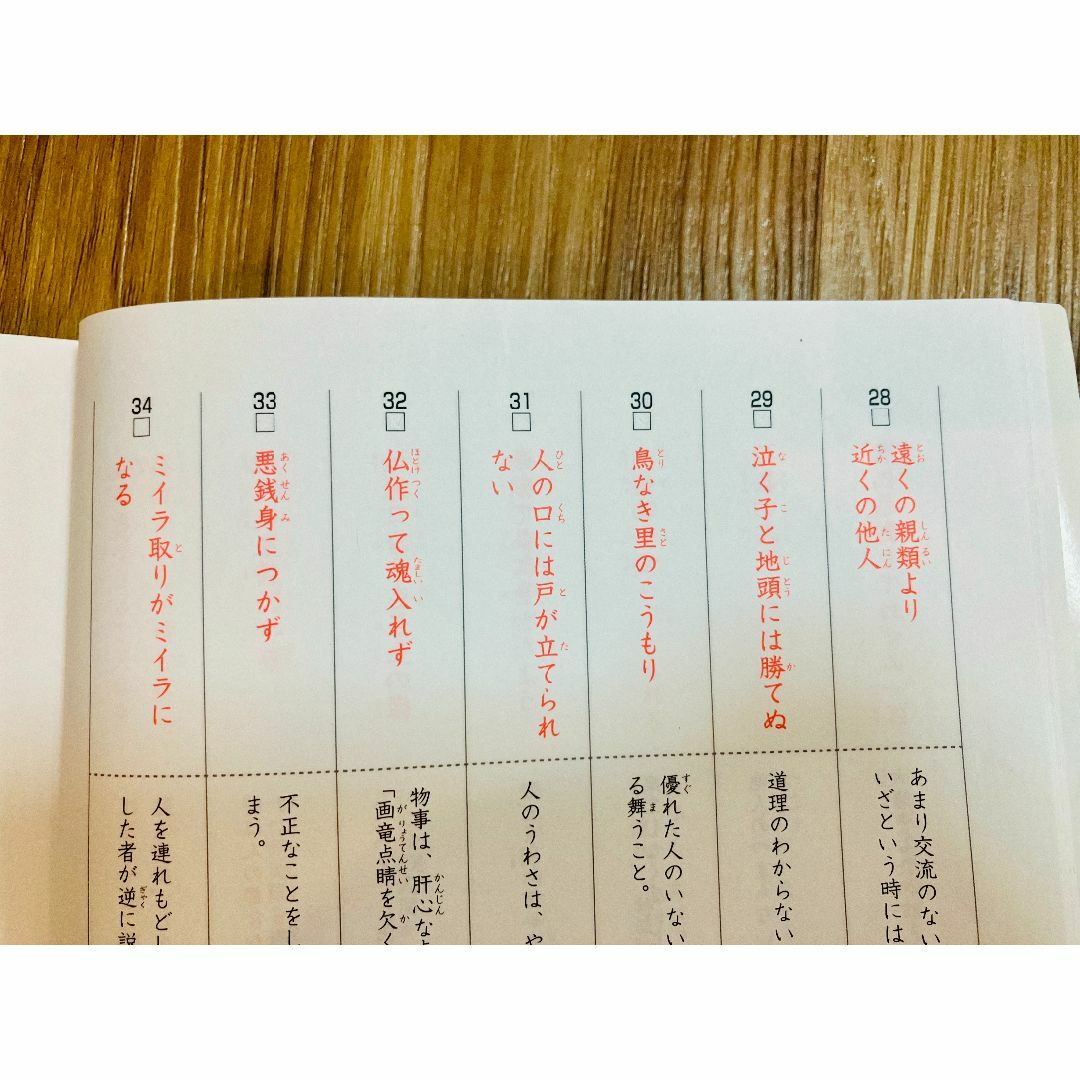 28
遠くの親類より
近くの他人
あまり交流のない
いざという時には
29
泣く子と地頭には勝てぬ
道理のわからない
30
鳥なき里のこうもり
優れた人のいない
る舞うこと。
31
人の口には戸が立てられ
ない
人のうわさは、や
32
仏作って魂入れず
物事は、肝心な
「画竜点睛を欠く
33
悪銭身につかず
不正なことをし
まう。
34
ミイラ取りがミイラに
なる
人を連れもどし
した者が逆に説